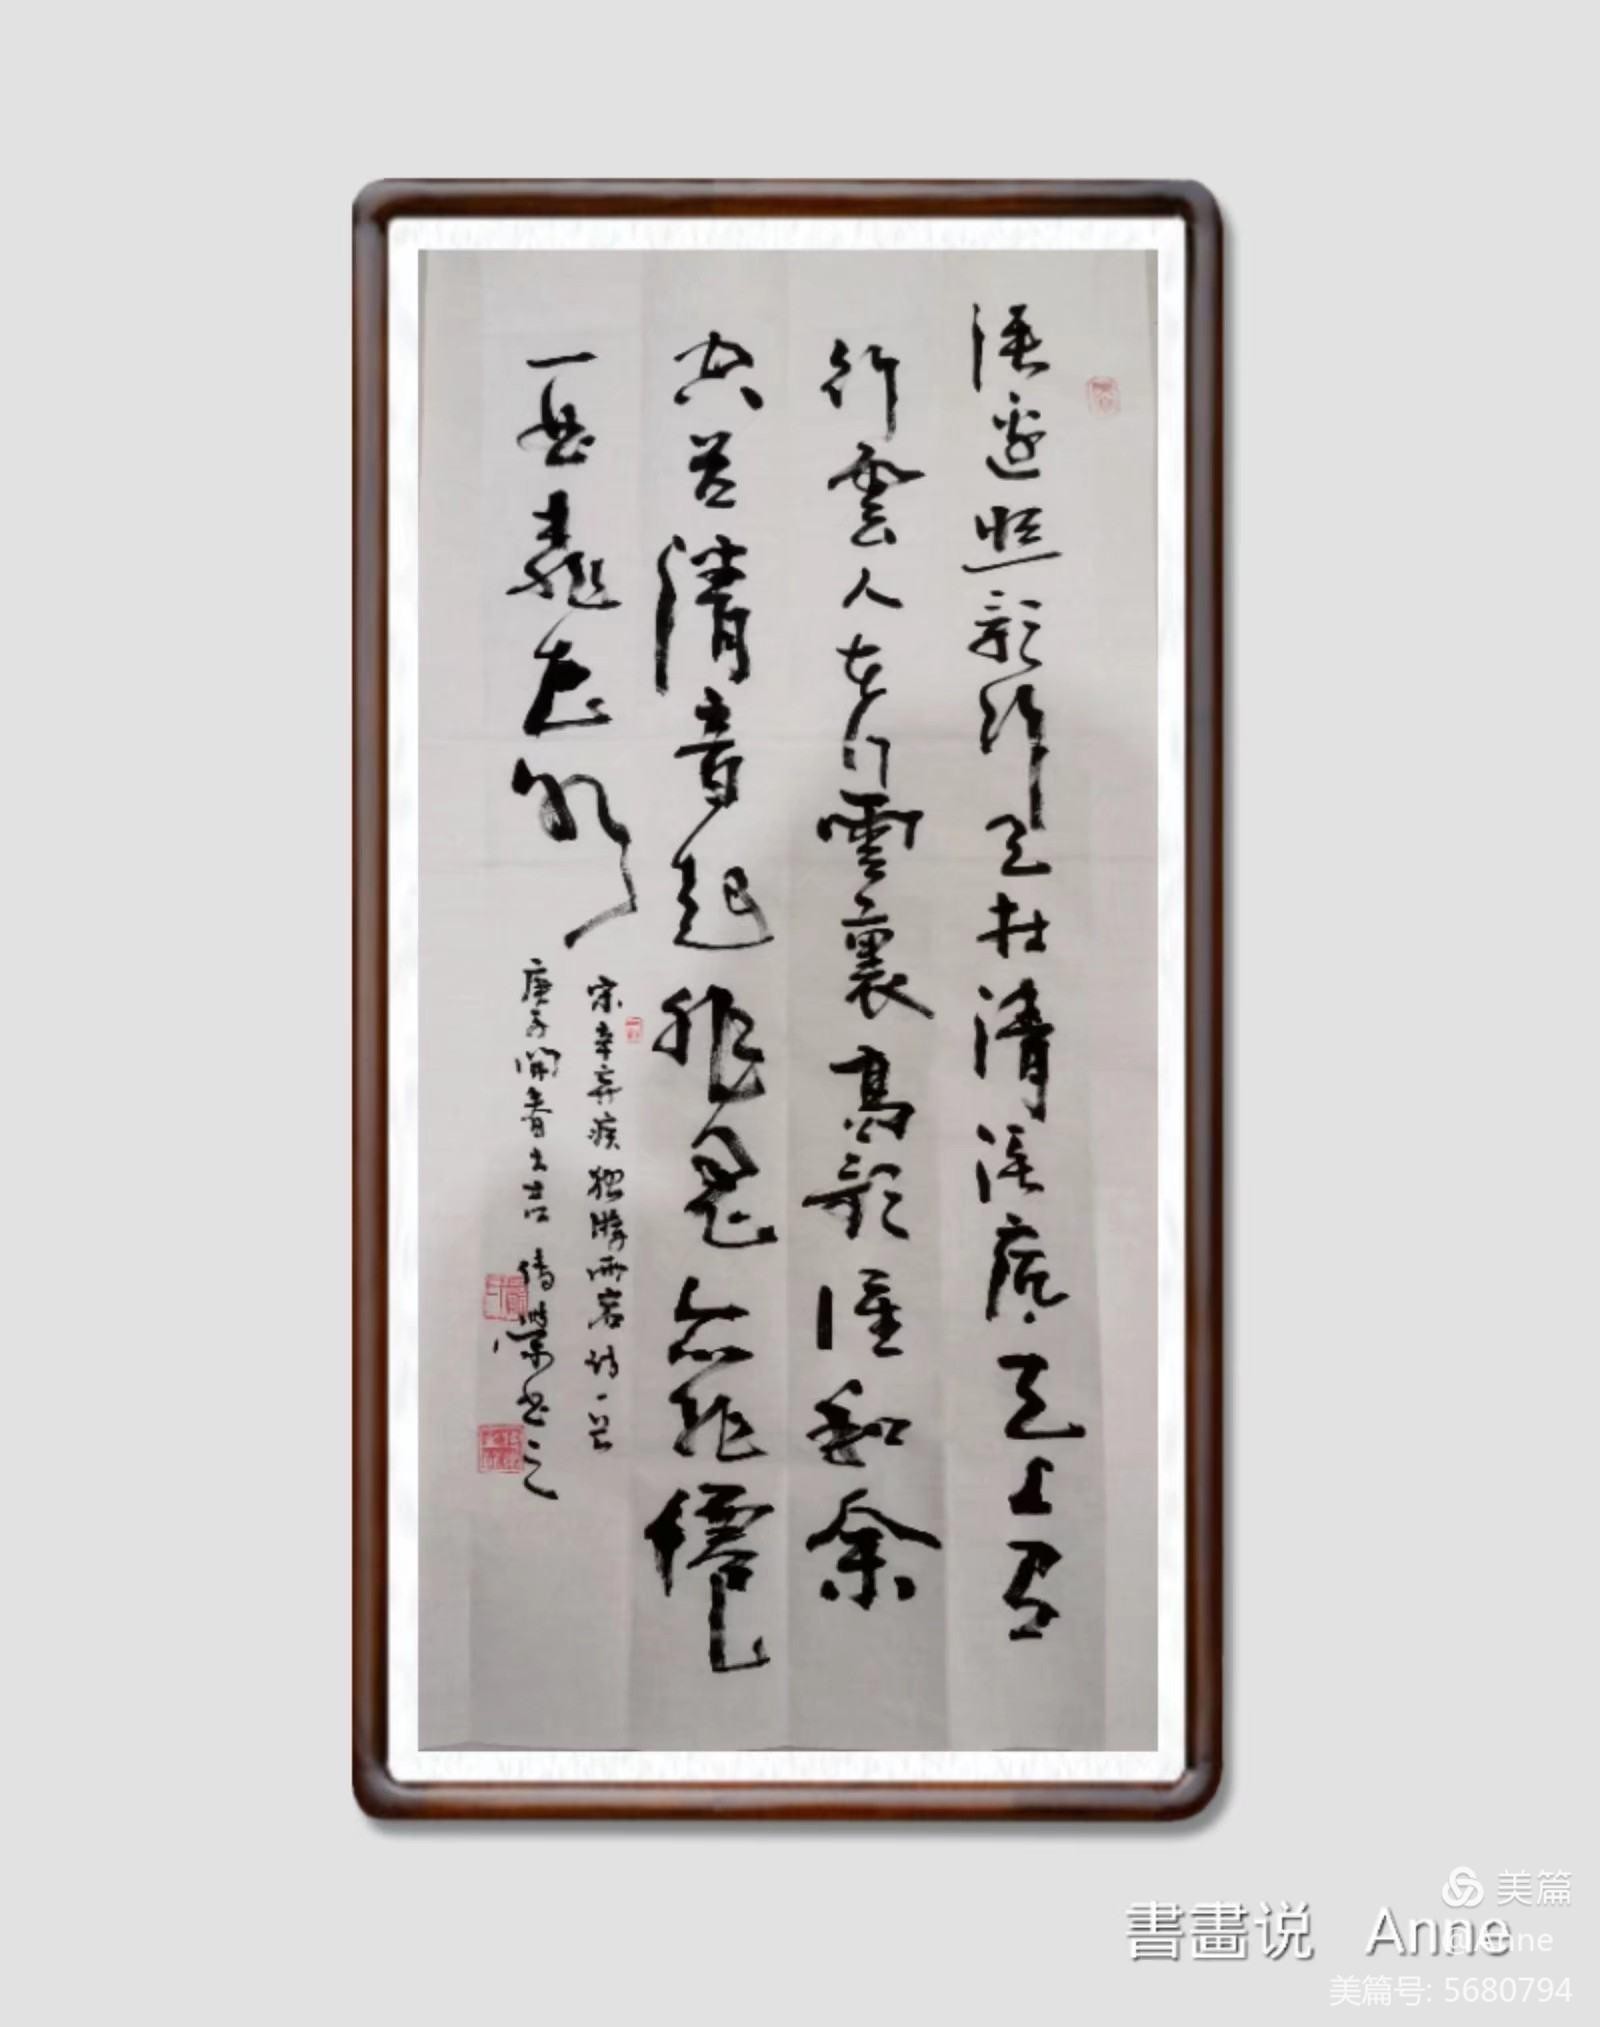 溪邊照影行天在清溪底天上有
行雲人在行雲裏高歌誰和余
空谷清音起非鬼亦非僊
一曲桃花水
宋辛弃疾獨游雨岩詩一首
庚子開春大吉 傅榮書之
書畫说 Anne
美篇
@Anne
美篇号: 5680794